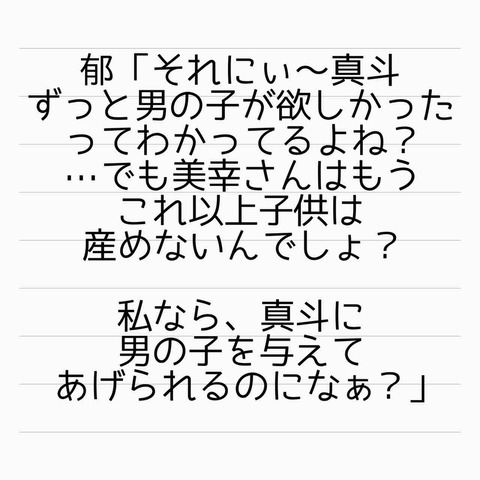 郁「それにぃ〜真斗
ずっと男の子が欲しかった
ってわかってるよね？
…でも美幸さんはもう
これ以上子供は
産めないんでしょ？
私なら、真斗に
男の子を与えて
あげられるのになぁ？」